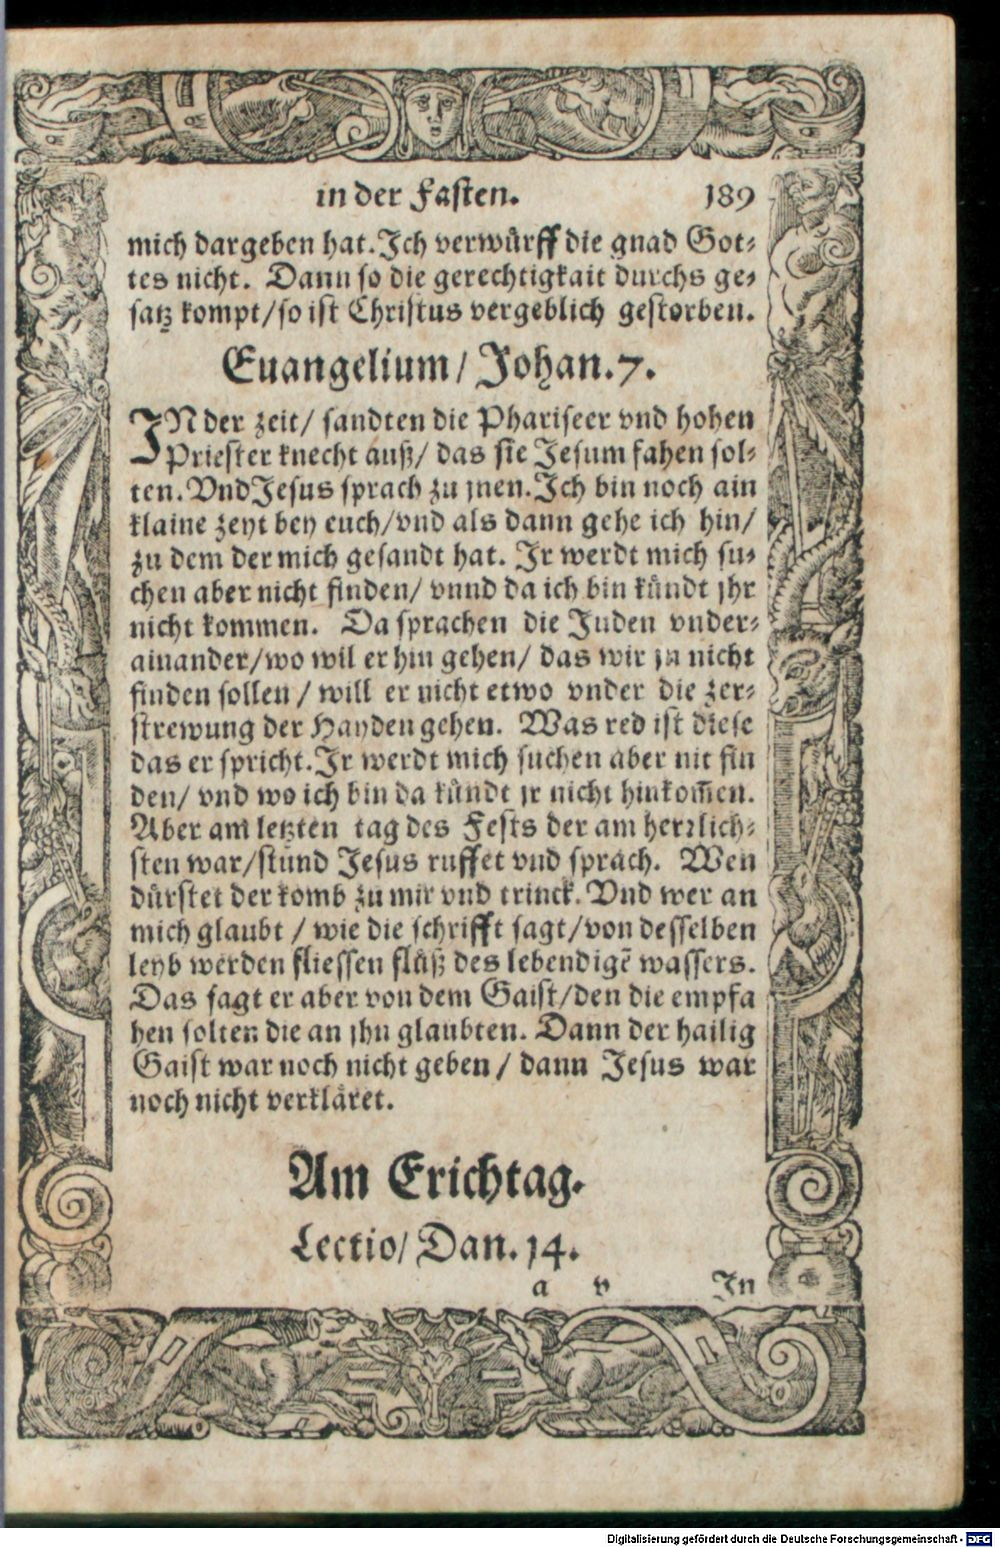 in der Fasten. 189
mich dargeben hat. Ich verwürff die gnad Got⸗
tes nicht. Dann so die gerechtigkait durchs ge⸗
satz kompt/so ist Christus vergeblich gestorben.
Euangelium/ Johan. 7.
IN der zeit/ sandten die Phariseer vnd hohen
Priester knecht auß/ das sie Jesum fahen sol⸗
ten. Vnd Jesus sprach zu jnen. Ich bin noch ain
klaine zeyt bey euch/vnd als dann gehe ich hin/
zu dem der mich gesandt hat. Ir werdt mich su⸗
chen aber nicht finden/ vnnd da ich bin kündt jhr
nicht kommen. Da sprachen die Juden vnder⸗
ainander/wo wil er hin gehen/ das wir jn nicht
finden sollen / will er nicht etwo vnder die zer⸗
strewung der Hayden gehen. Was red ist diese
das er spricht. Ir werdt mich suchen aber nit fin
den/ vnd wo ich bin da kündt jr nicht hinkom̃en.
Aber am letzten tag des Fests der am herrlich⸗
sten war/stůnd Jesus ruffet vnd sprach. Wen
dürstet der komb zu mir vnd trinck. Vnd wer an
mich glaubt / wie die schrifft sagt/von desselben
leyb werden fliessen flüß des lebendigẽ wassers.
Das sagt er aber von dem Gaist/den die empfa
hen solten die an jhn glaubten. Dann der hailig
Gaist war noch nicht geben / dann Jesus war
noch nicht verkläret.
Am Erichtag.
Lectio/ Dan. 14.
a v In
Digitalisierung gefördert durch die Deutsche Forschungsgemeinschaft - DFG